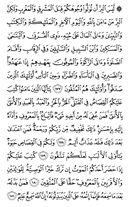 ۞ لَّيْسَ ٱلْبِرَّ أَن تُوَلُّوا۟ وُجُوهَكُمْ قِبَلَ ٱلْمَشْرِقِ وَٱلْمَغْرِبِ وَلَٰكِنَّ
ٱلْبِرَّ مَنْ ءَامَنَ بِٱللَّهِ وَٱلْيَوْمِ ٱلْءَاخِرِ وَٱلْمَلَٰٓئِكَةِ وَٱلْكِتَٰبِ
وَٱلنَّبِيِّۦنَ وَءَاتَى ٱلْمَالَ عَلَىٰ حُبِّهِۦ ذَوِى ٱلْقُرْبَىٰ وَٱلْيَتَٰمَىٰ
وَٱلْمَسَٰكِينَ وَٱبْنَ ٱلسَّبِيلِ وَٱلسَّآئِلِينَ وَفِى ٱلرِّقَابِ وَأَقَامَ
ٱلصَّلَوٰةَ وَءَاتَى ٱلزَّكَوٰةَ وَٱلْمُوفُونَ بِعَهْدِهِمْ إِذَا عَٰهَدُوا۟
وَٱلصَّٰبِرِينَ فِى ٱلْبَأْسَآءِ وَٱلضَّرَّآءِ وَحِينَ ٱلْبَأْسِ أُو۟لَٰٓئِكَ
ٱلَّذِينَ صَدَقُوا۟ وَأُو۟لَٰٓئِكَ هُمُ ٱلْمُتَّقُونَ ١٧٧ يَٰٓأَيُّهَا ٱلَّذِينَ ءَامَنُوا۟ كُتِبَ
عَلَيْكُمُ ٱلْقِصَاصُ فِى ٱلْقَتْلَى ٱلْحُرُّ بِٱلْحُرِّ وَٱلْعَبْدُ بِٱلْعَبْدِ
وَٱلْأُنثَىٰ بِٱلْأُنثَىٰ فَمَنْ عُفِىَ لَهُۥ مِنْ أَخِيهِ شَىْءٌ فَٱتِّبَاعٌۢ
بِٱلْمَعْرُوفِ وَأَدَآءٌ إِلَيْهِ بِإِحْسَٰنٍ ذَٰلِكَ تَخْفِيفٌ مِّن رَّبِّكُمْ وَرَحْمَةٌ
فَمَنِ ٱعْتَدَىٰ بَعْدَ ذَٰلِكَ فَلَهُۥ عَذَابٌ أَلِيمٌ ١٧٨ وَلَكُمْ فِى ٱلْقِصَاصِ
حَيَوٰةٌ يَٰٓأُو۟لِى ٱلْأَلْبَٰبِ لَعَلَّكُمْ تَتَّقُونَ ١٧٩ كُتِبَ عَلَيْكُمْ
إِذَا حَضَرَ أَحَدَكُمُ ٱلْمَوْتُ إِن تَرَكَ خَيْرًا ٱلْوَصِيَّةُ
لِلْوَٰلِدَيْنِ وَٱلْأَقْرَبِينَ بِٱلْمَعْرُوفِ حَقًّا عَلَى ٱلْمُتَّقِينَ ١٨٠
فَمَنۢ بَدَّلَهُۥ بَعْدَ مَا سَمِعَهُۥ فَإِنَّمَآ إِثْمُهُۥ عَلَى ٱلَّذِينَ يُبَدِّلُونَهُۥٓ إِنَّ ٱللَّهَ سَمِيعٌ عَلِيمٌ ١٨١